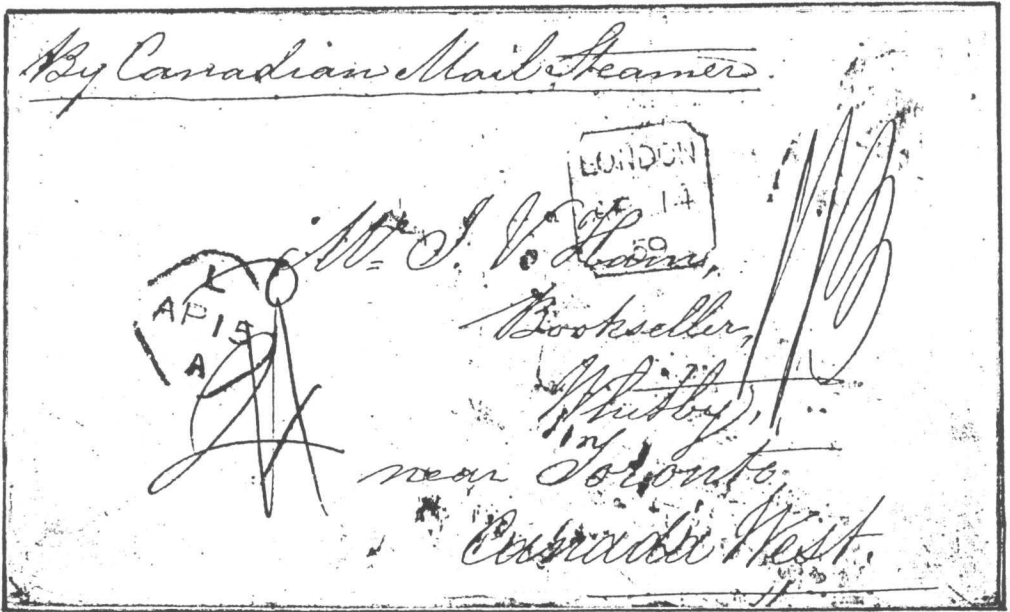 By Canadian Mail Steamer.
LONDON
14
59
Mr. J. V. Ham,
L
AP 15
A
Bookseller,
Whitby,
near Toronto,
Canada West.